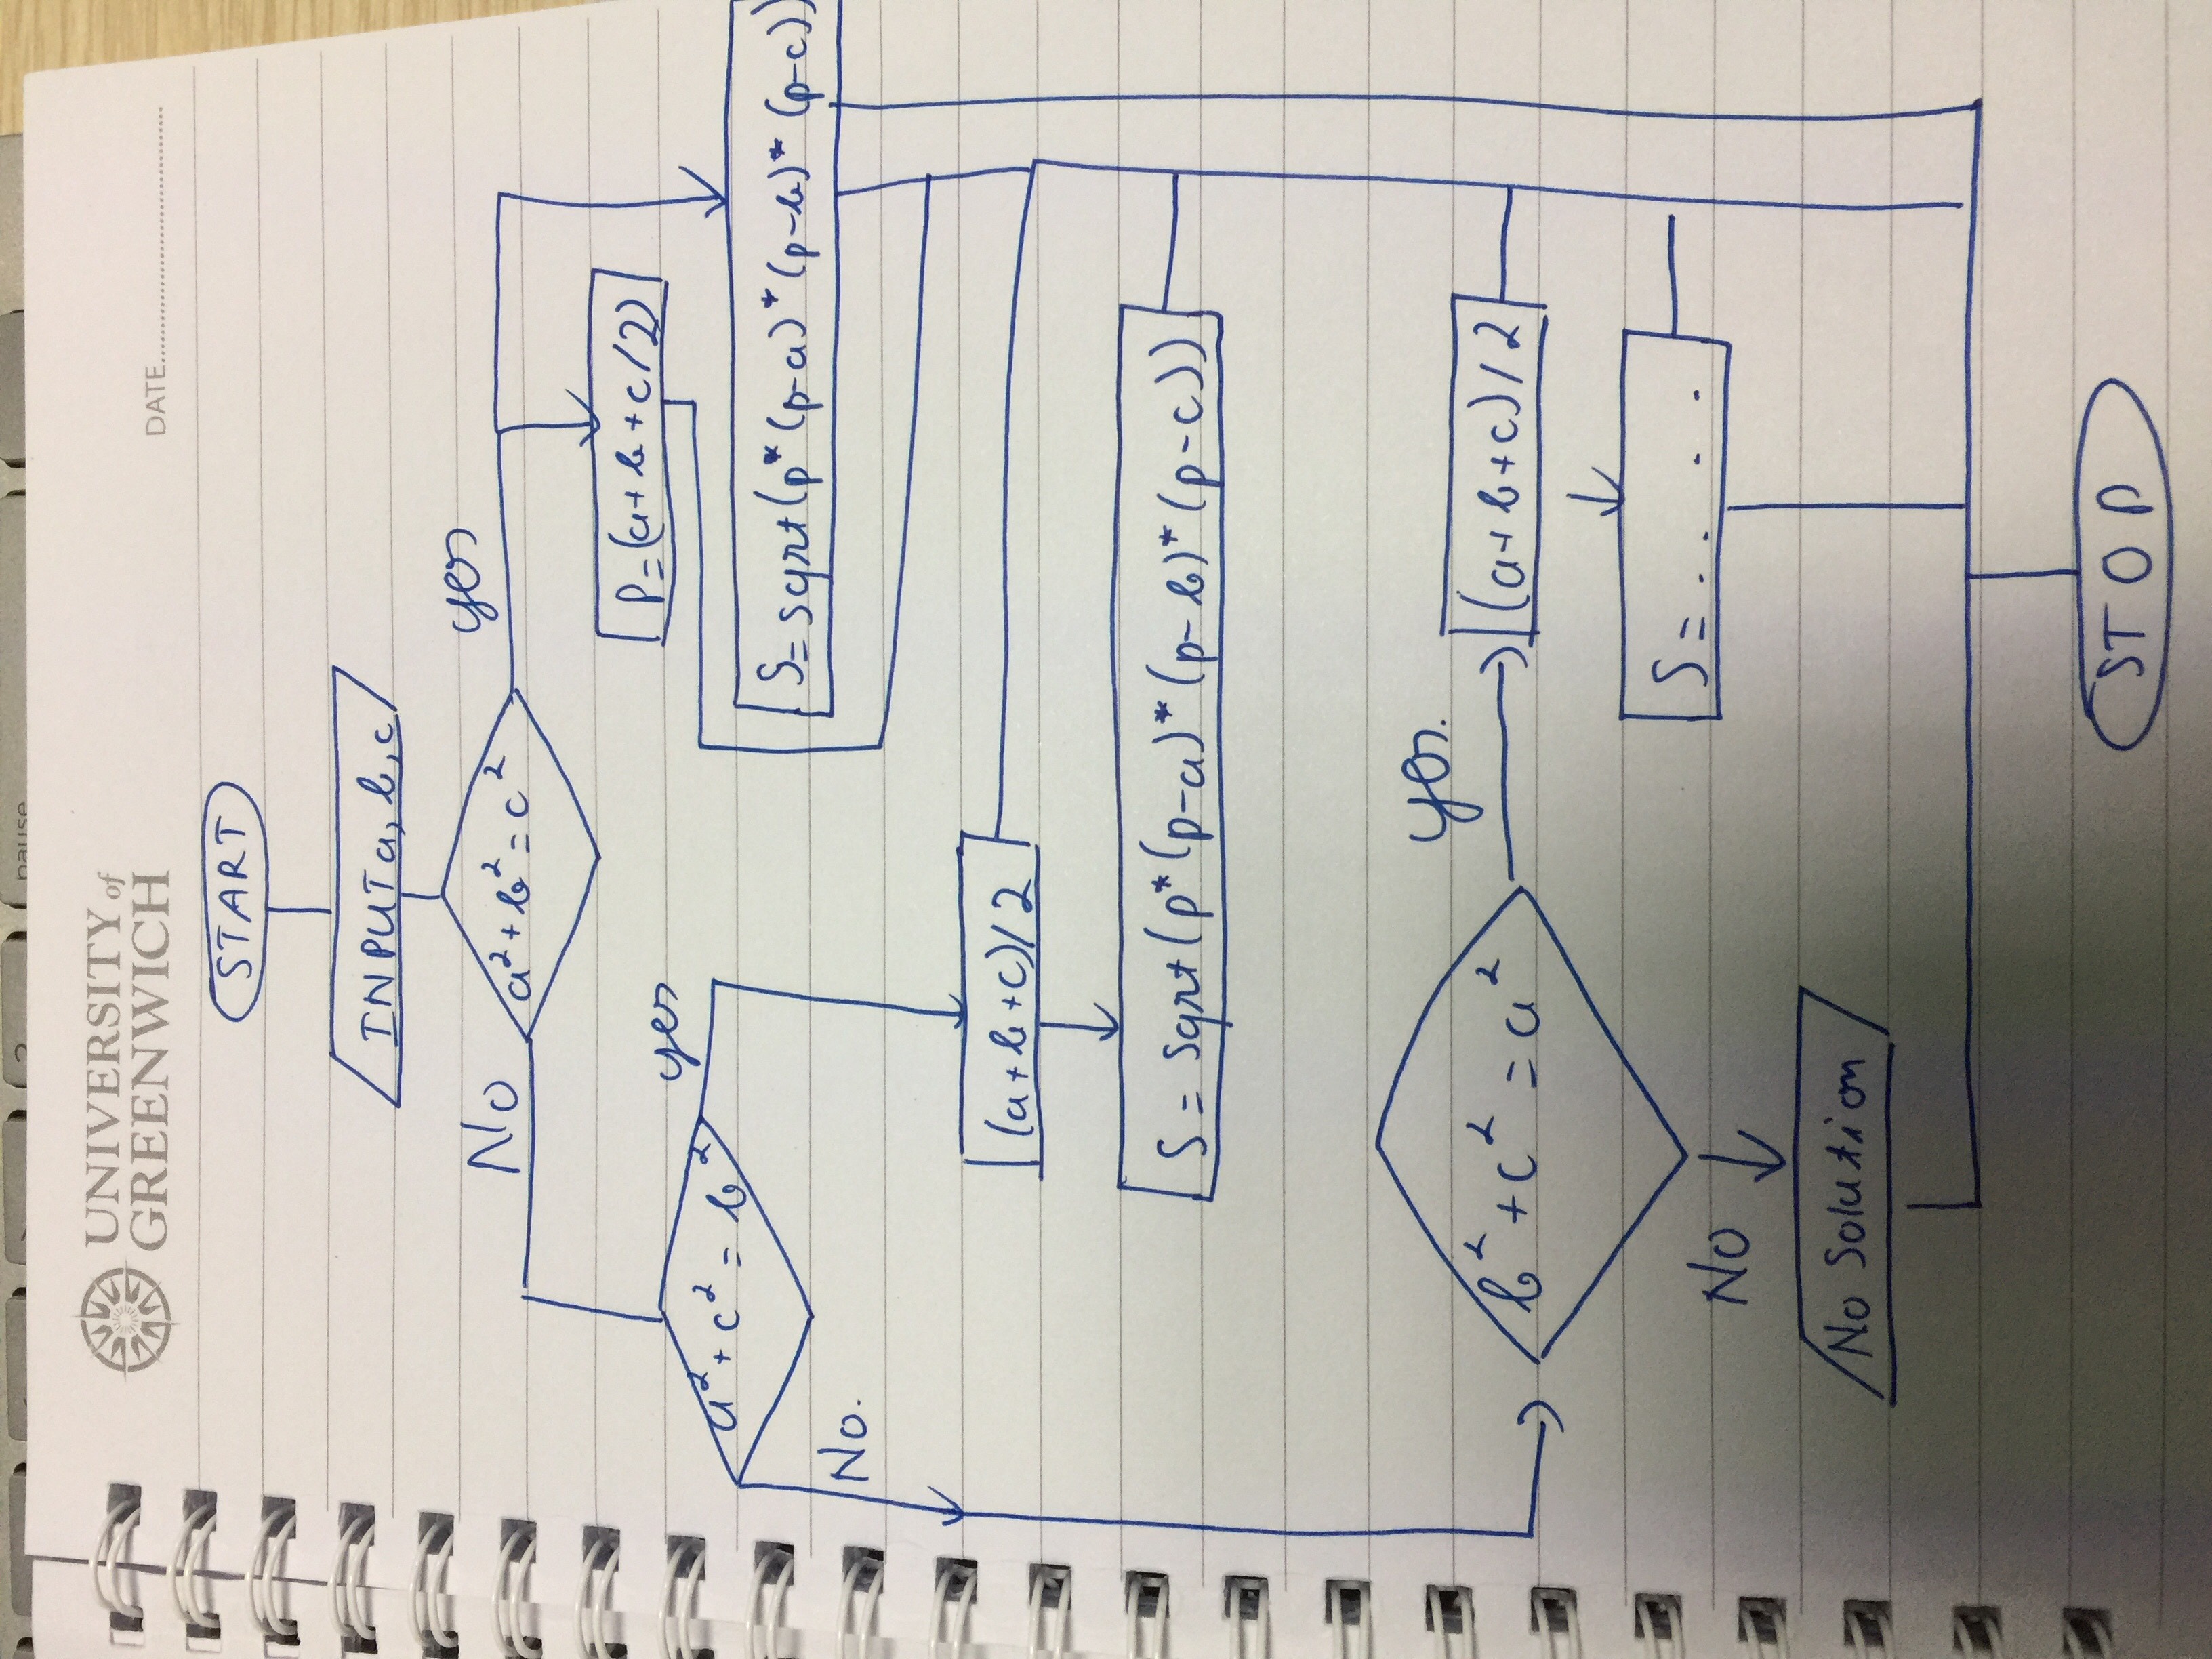 pause
UNIVERSITY of
GREENWICH
DATE
START
INPUT a, b, c
No
a² + b² = c²
yes
P=(a+b+c/2)
a² + c² = b²
yes
No.
S= sqrt(p*(p-a)*(p-b)*(p-c))
(a+b+c)/2
S = sqrt(p*(p-a)*(p-b)*(p-c))
b² + c² = a²
yes.
(a+b+c)/2
S = . . . .
No
No Solution
STOP